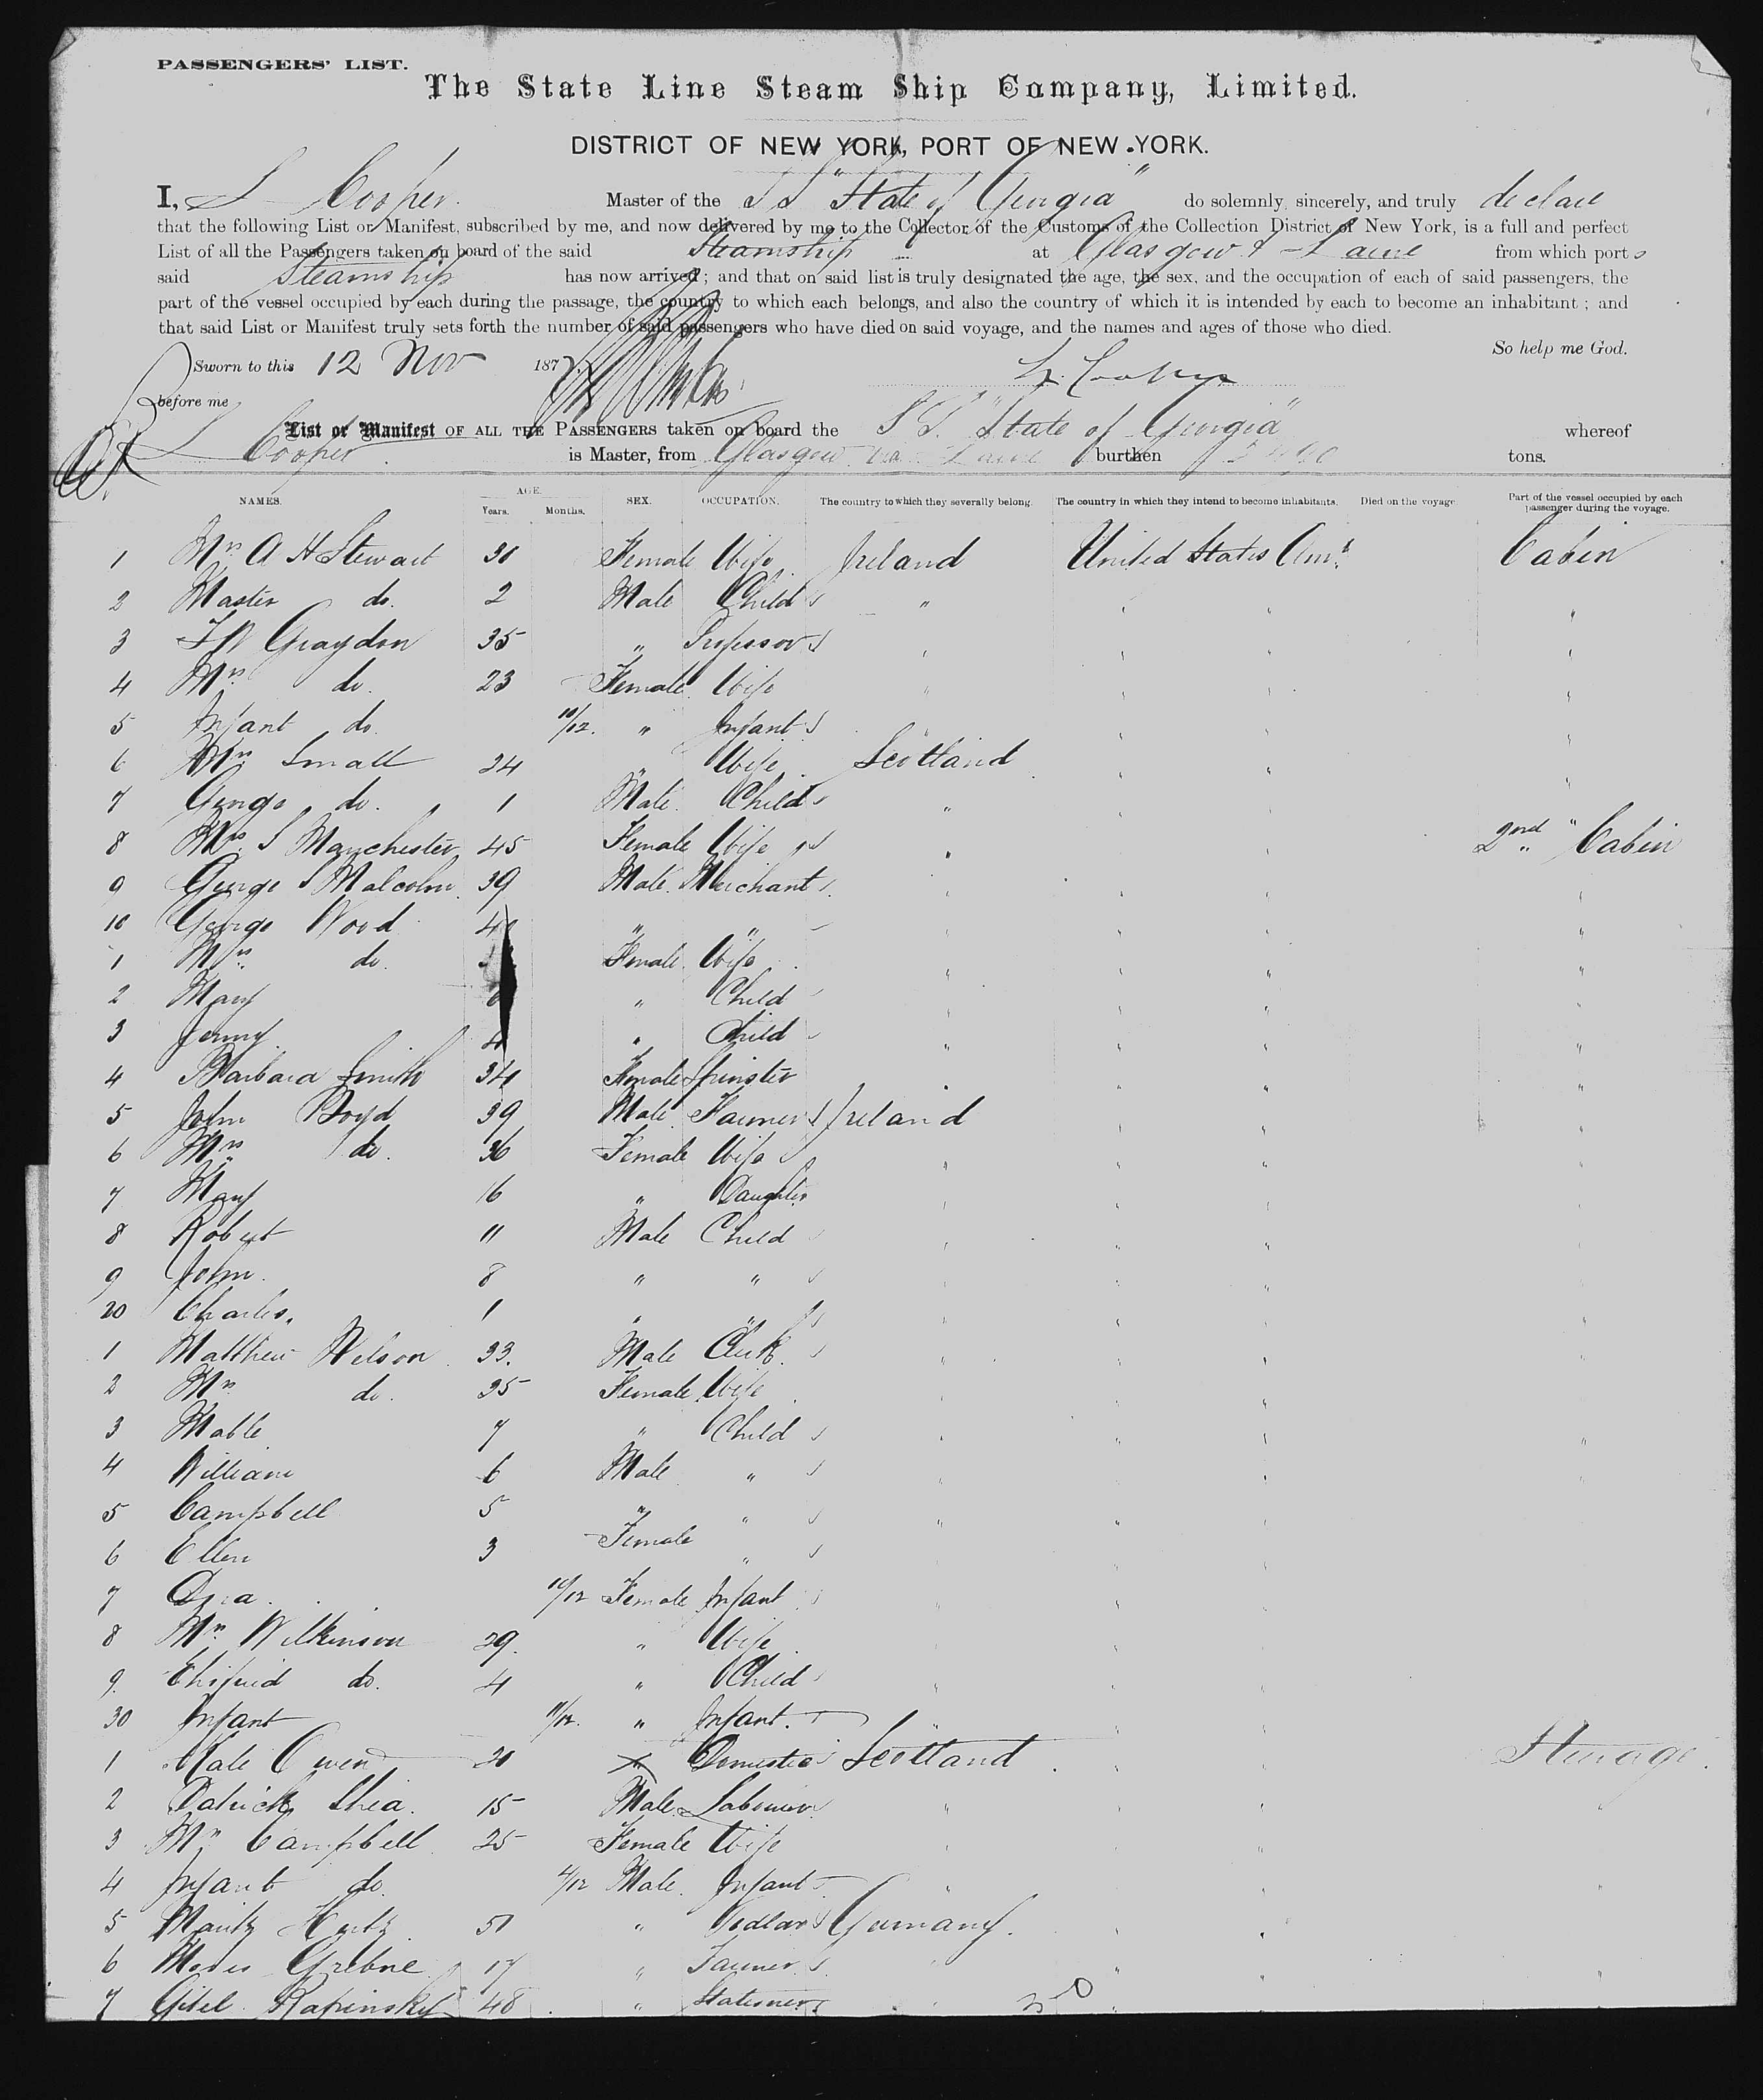 PASSENGERS' LIST.
The State Line Steam Ship Company, Limited.
DISTRICT OF NEW YORK, PORT OF NEW YORK.
I, L Cooper Master of the S S "State of Georgia" do solemnly, sincerely, and truly declare
that the following List or Manifest, subscribed by me, and now delivered by me to the Collector of the Customs of the Collection District of New York, is a full and perfect
List of all the Passengers taken on board of the said Steamship at Glasgow & Larne from which ports
said Steamship has now arrived; and that on said list is truly designated the age, the sex, and the occupation of each of said passengers, the
part of the vessel occupied by each during the passage, the country to which each belongs, and also the country of which it is intended by each to become an inhabitant; and
that said List or Manifest truly sets forth the number of said passengers who have died on said voyage, and the names and ages of those who died.
So help me God.
Sworn to this 12 Nov 187
before me
Cooper
List or Manifest OF ALL THE PASSENGERS taken on board the S S. "State of Georgia" whereof
L Cooper is Master, from Glasgow via Larne burthen tons.
NAMES. AGE. Years. Months. SEX. OCCUPATION. The country to which they severally belong. The country in which they intend to become inhabitants. Died on the voyage Part of the vessel occupied by each passenger during the voyage.
1 Mrs A H Stewart Female Wife Ireland United States Am. Cabin
2 Master do. 2 Male Child "
3 Graydon 35 " Professor
4 Mrs do. 23 Female Wife
5 Infant do. 10/12. " Infant
6 Mrs Small 24 " Wife Scotland
7 George do. 1 Male Child "
8 Mrs S Manchester 45 Female Wife 2nd Cabin
9 George S Malcolm 39 Male Merchant
10 George Wood " "
1 Mrs do. Female Wife
2 Mary " Child
3 Jenny 4 " Child
4 Barbara Smith 34 Female Spinster
5 John Boyd 39 Male Farmer Ireland
6 Mrs do. 36 Female Wife
7 Mary 16 " Daughter
8 Robert 11 Male Child
9 John 8 " "
20 Charles. 1 " "
1 Matthew Wilson 33. Male Clerk
2 Mrs do. 35 Female Wife
3 Mable 7 " Child
4 William 6 Male "
5 Campbell 5 " "
6 Ellen 3 Female "
7 10/12 Female Infant
8 Mrs Wilkinson 29. " Wife
9. do. 4 " Child
30 Infant 11/12. " Infant.
1 Kate Owen 20 Domestic Scotland Steerage.
2 Patrick Shea. 15 Male Labourer
3 Mrs Campbell 25 Female Wife
4 Infant do. Male Infant
5 " Pedlar Germany.
6 Moses Grebne 17 " Farmer
7 Gitel Rapinsky 48 " Stationer